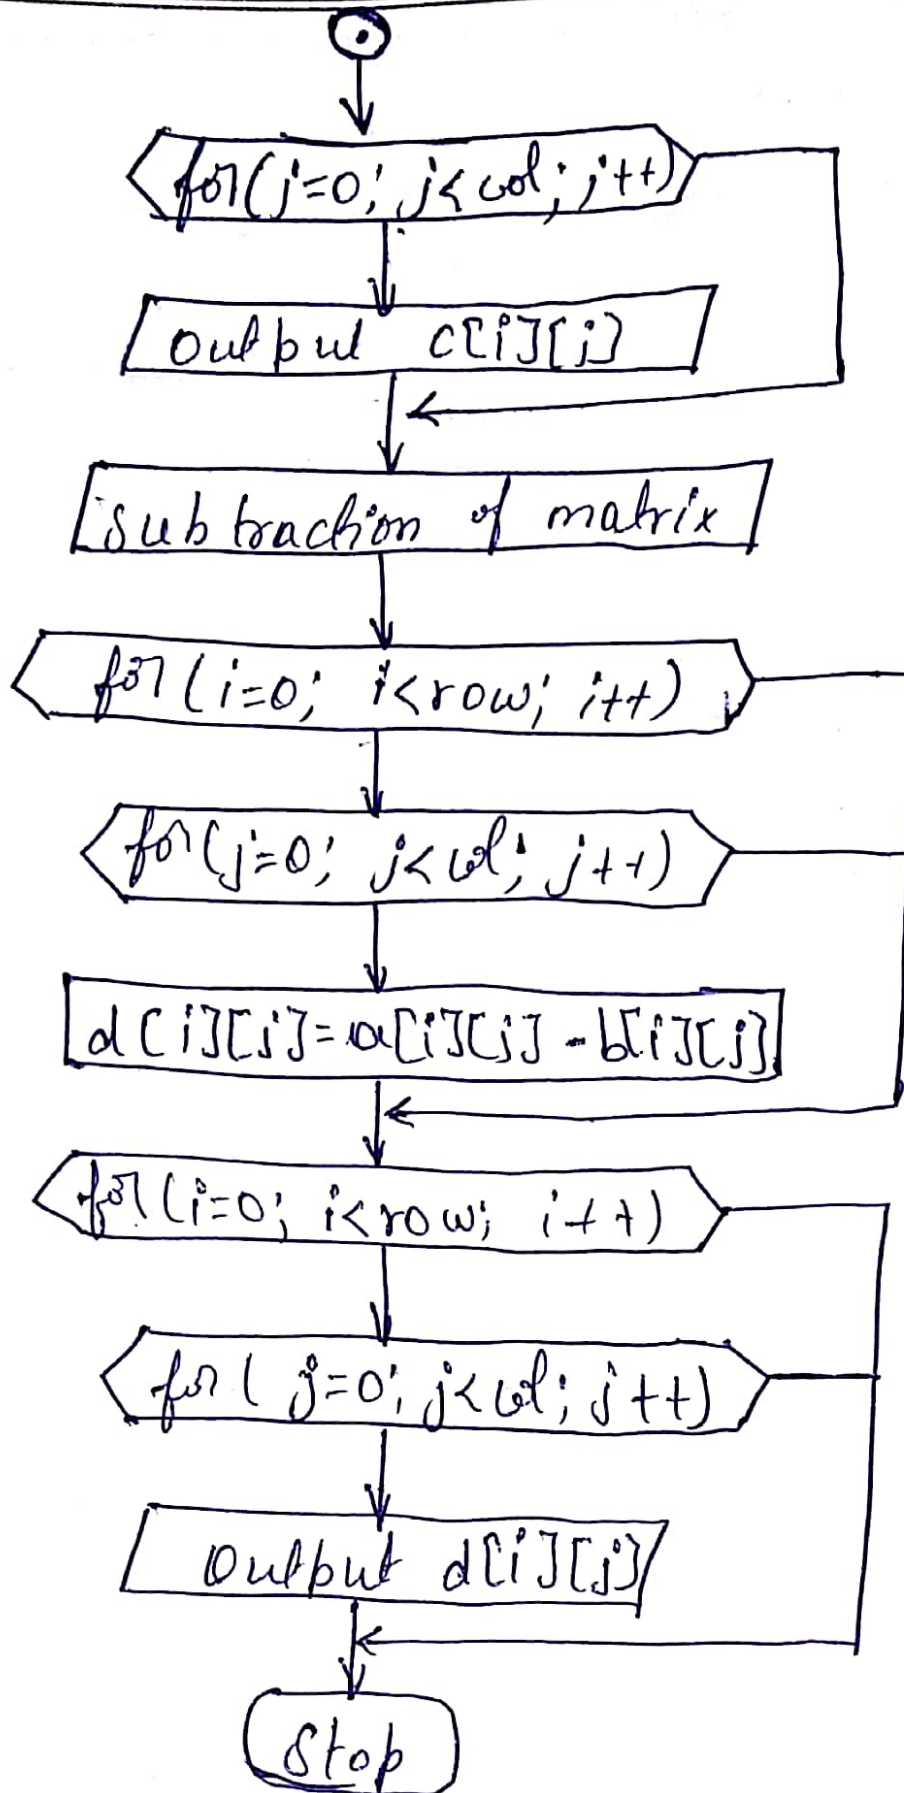 for(j=0; j<col; j++)
output c[i][j]
subtraction of matrix
for(i=0; i<row; i++)
for(j=0; j<col; j++)
d[i][j]=a[i][j]-b[i][j]
for(i=0; i<row; i++)
for( j=0; j<col; j++)
output d[i][j]
Stop